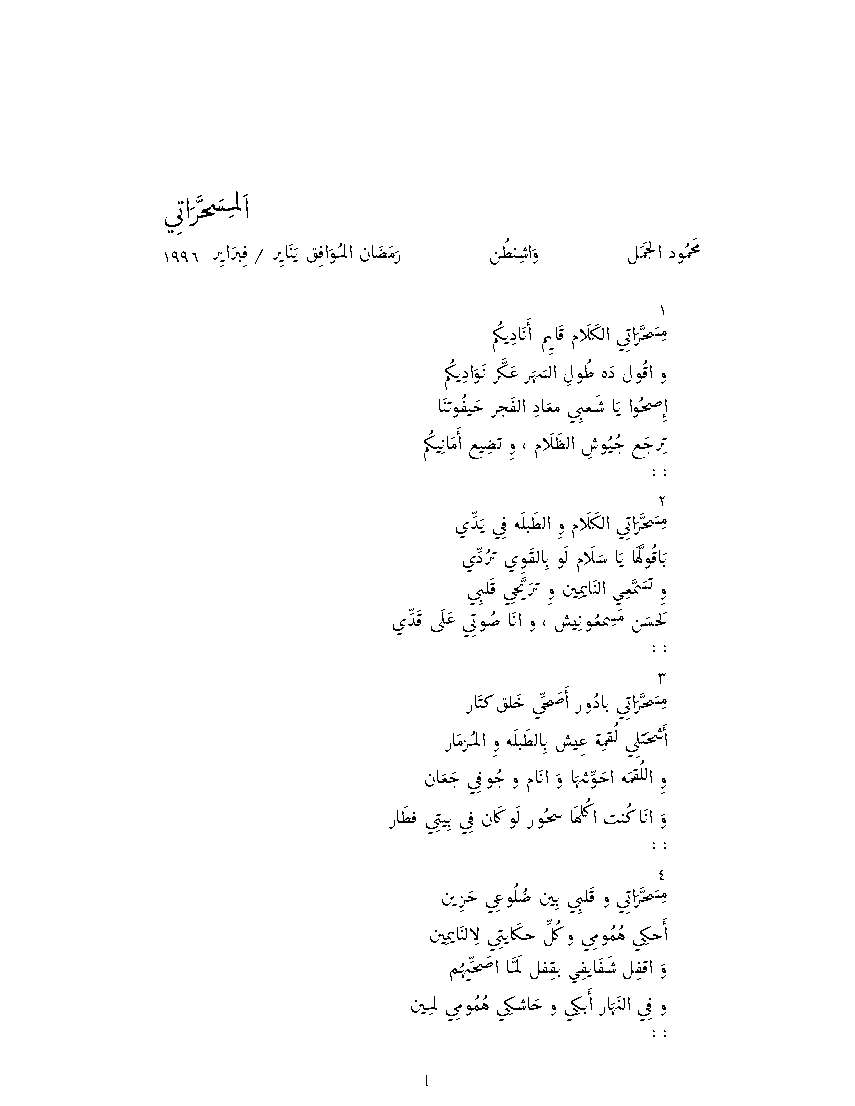 اَلمِسَحَّرَاتِي
مَحَمُود الجَمَل وَاشِنطُن رَمَضَان المُوَافِق يَنَايِر / فِبرَايِر ١٩٩٦
١
مِسَحَّرَاتِي الكَلَام قَايِم أَنَادِيكُم
و اقُول دَه طُولِ السَهَر عَكَّر نَوَادِيكُم
إِصحُوا يَا شَعبِي معَادِ الفَجر حَيفُوتنَا
تِرجَع جُيُوشِ الظَلَام ، وِ تضِيع أَمَانِيكُم
: :
٢
مِسَحَّرَاتِي الكَلَام وِ الطَبلَه فِي يَدِّي
بَاقُولهَا يَا سَلَام لَو بِالقَوِي تَرُدِّي
وِ تسَمَّعِي النَايمِين وِ ترَيَّحِي قَلبِي
لَحسَن مَسِمعُونِيش ، و انَا صُوتِي عَلَى قَدِّي
: :
٣
مِسَحَّرَاتِي بادُور أَصَحِّي خَلق كتَار
أَشحَتلِي لُقمِة عِيش بِالطَبلَه وِ المُزمَار
وِ اللُقمَه احَوِّشهَا وَ انَام و جُوفِي جَعَان
وَ انَا كُنت اكُلهَا سحُور لَو كَان فِي بِيتِي فطَار
: :
٤
مِسَحَّرَاتِي و قَلبِي بِين ضُلُوعِي حَزِين
أَحكِي هُمُومِي و كُلِّ حكَايتِي لِلنَايمِين
وَ اقفِل شَفَايفِي بقِفل لَمَّا اصَحِّيهُم
و فِي النَهَار أَبكِي و حَاشكِي هُمُومِي لمِين
: :
1